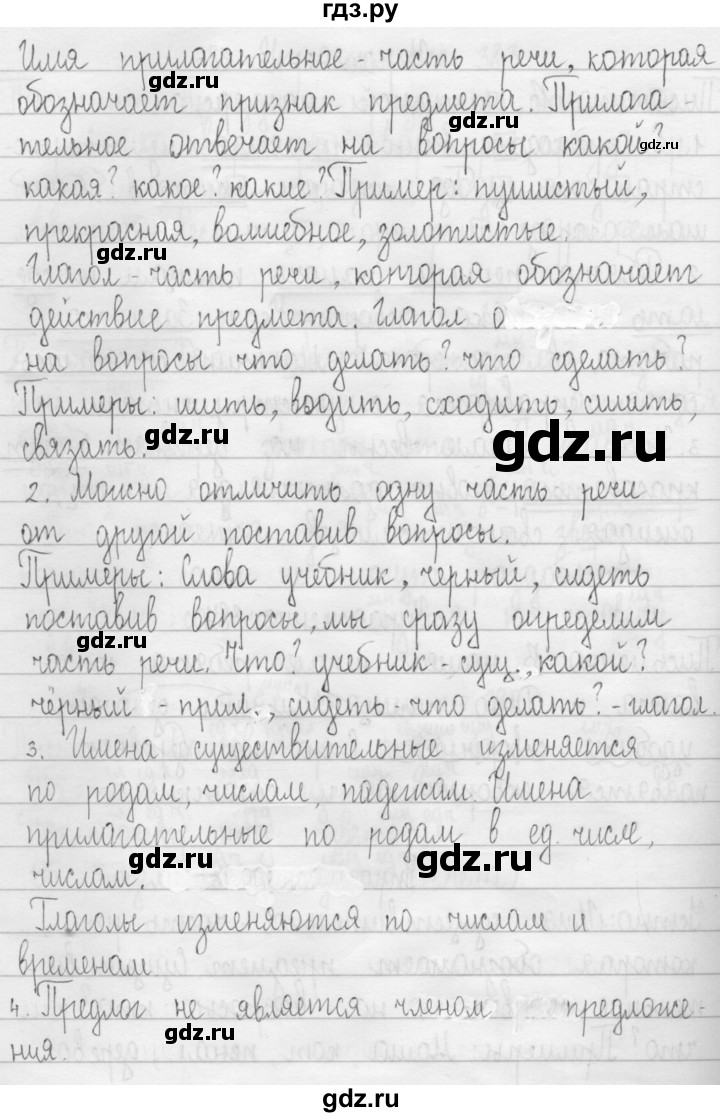 гдз.ру
Имя прилагательное - часть речи, которая
gdz.ru
обозначает признак предмета. Прилага
gdz.ru
тельное отвечает на вопросы какой?
gdz.ru
какая? какое? какие? Пример: пушистый,
прекрасная, волшебное, золотистые.
gdz.ru
Глагол - часть речи, которая обозначает
действие предмета. Глагол о
на вопросы что делать? что сделать?
Примеры: шить, водить, сходить, сшить,
gdz.ru
связать.
gdz.ru
2. Можно отличить одну часть речи
от другой поставив вопросы.
Примеры: Слова учебник, черный, сидеть
поставив вопросы, мы сразу определим
gdz.ru
часть речи. Что? учебник - сущ., какой?
чёрный - прил., сидеть - что делать? - глагол.
3. Имена существительные изменяется
по родам, числам, падежам. Имена
прилагательные по родам в ед. числе,
gdz.ru
gdz.ru
числам.
Глаголы изменяются по числам и
временам
4. Предлог не является членом предложе-
gdz.ru
ния.
gdz.ru